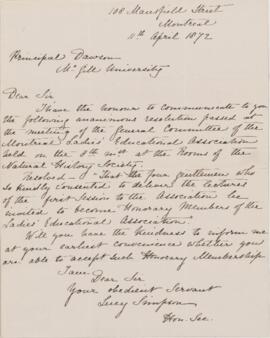 108 Mansfield Street
Montreal
11th April 1872
Principal Dawson
McGill University
Dear Sir
I have the honour to communicate to you
the following unanimous resolution passed at
the meeting of the General Committee of the
Montreal Ladies' Educational Association
held on the 8th inst at the Rooms of the
Natural History Society.
Resolved - "That the four gentlemen who
so kindly consented to deliver the lectures
of the first Session to the Association be
invited to become Honorary Members of the
Ladies' Educational Association.
Will you have the kindness to inform me
at your earliest convenience whether you
are able to accept such Honorary Membership
I am
Dear Sir
Your obedient Servant
Lucy Simpson
Hon. Sec.